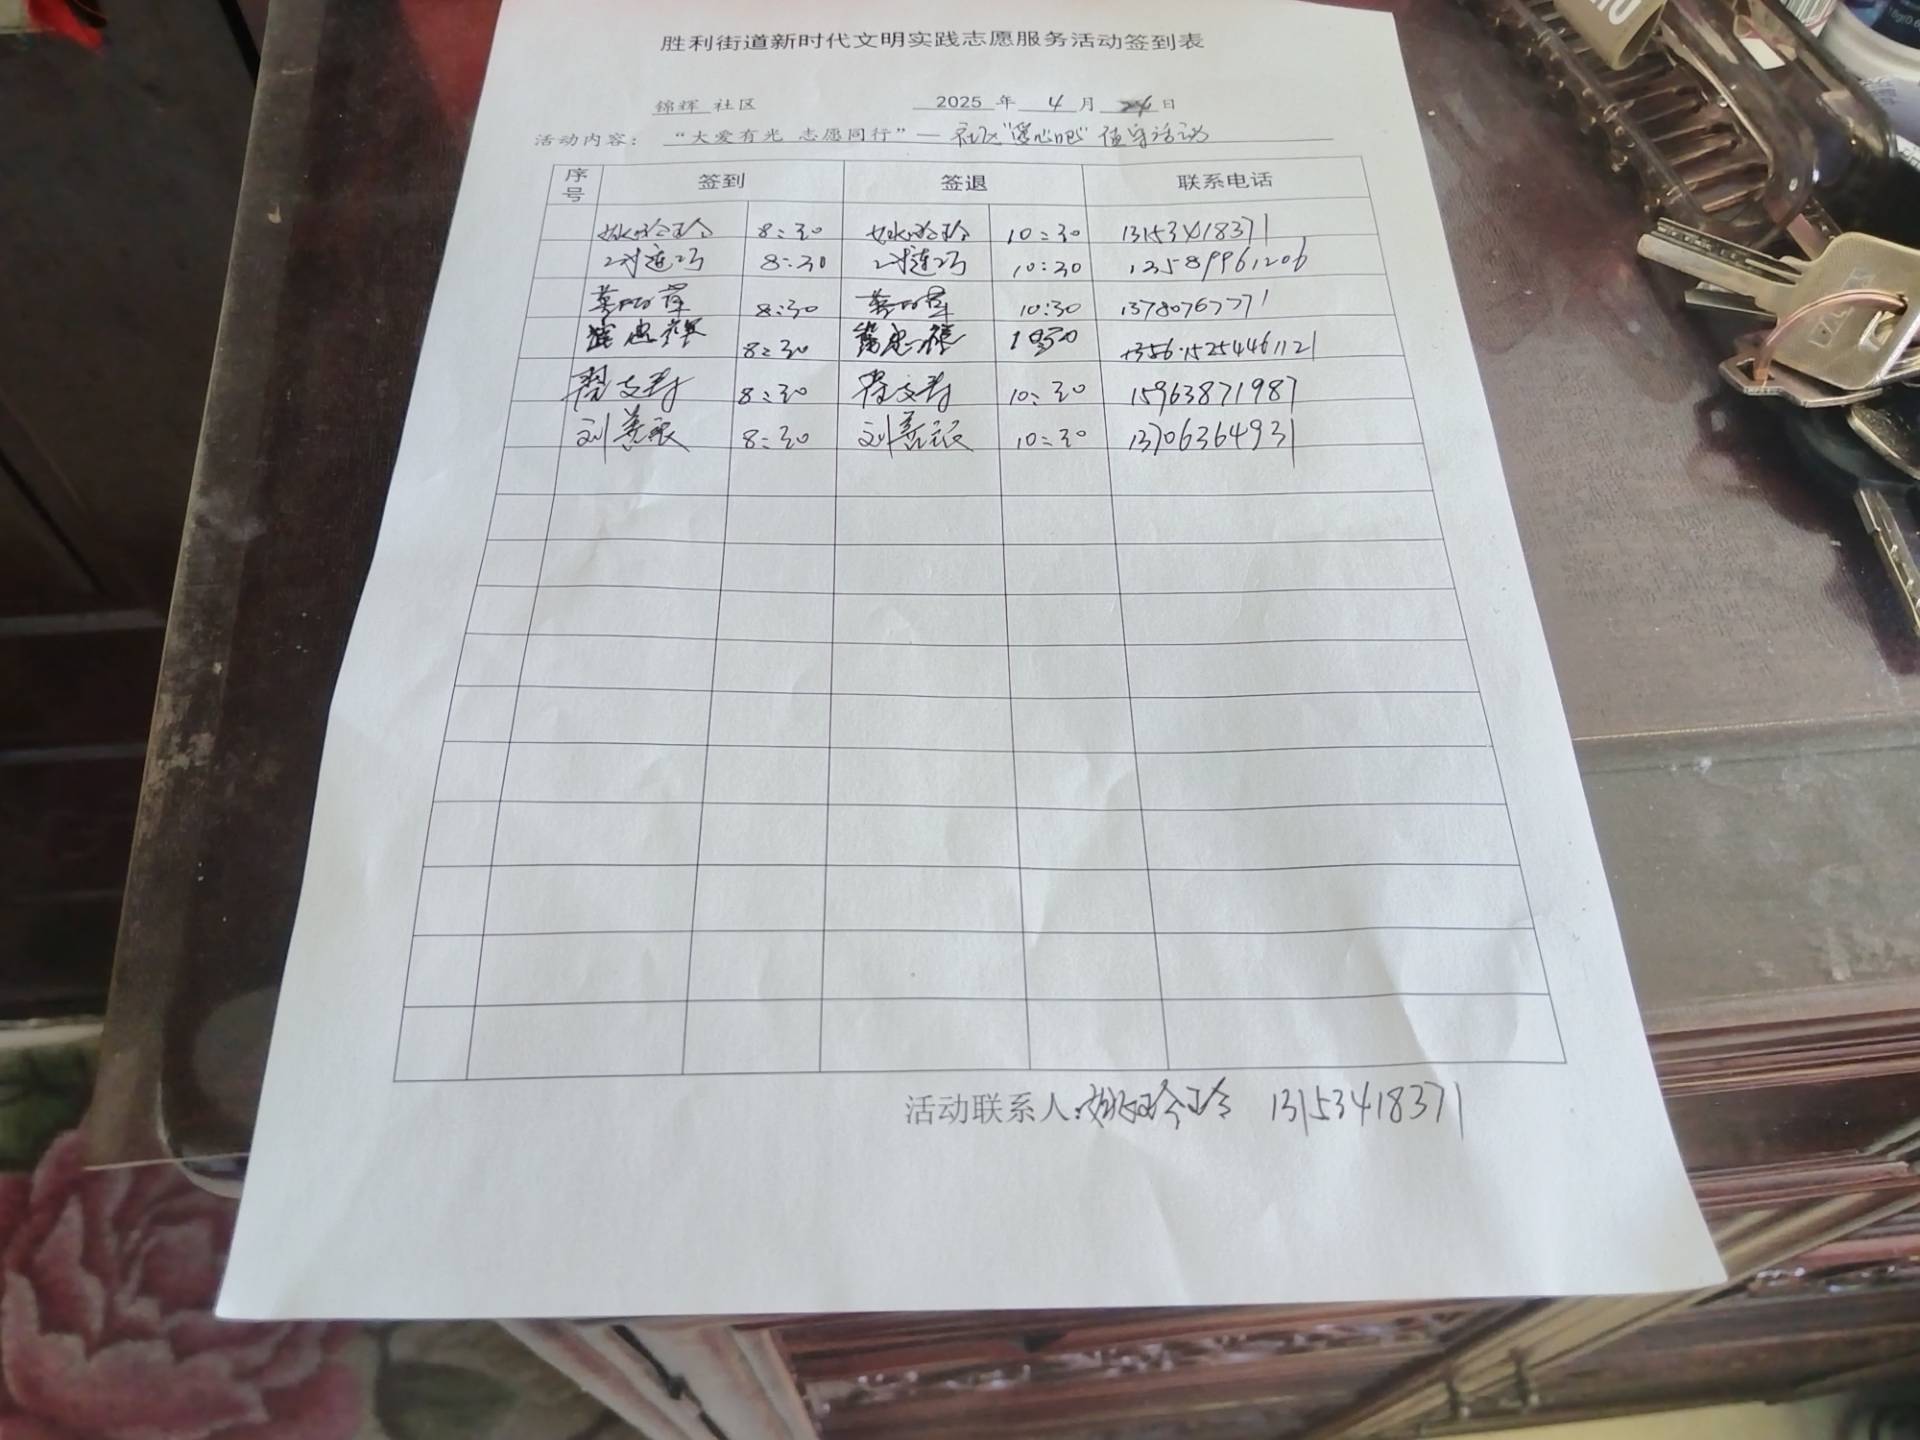 胜利街道新时代文明实践志愿服务活动签到表
锦辉 社区 2025 年 4 月 24 日
活动内容： “大爱有光 志愿同行”— 社区“暖心吧”值守活动
序号 签到 签退 联系电话
姚玲玲 8:30 姚玲玲 10:30 13153418371
8:30 10:30 13589961206
8:30 10:30 13780767771
8:30 1030 15254461121
8:30 10:30 15963871987
刘 8:30 刘 10:30 13706364931
活动联系人: 姚玲玲 13153418371